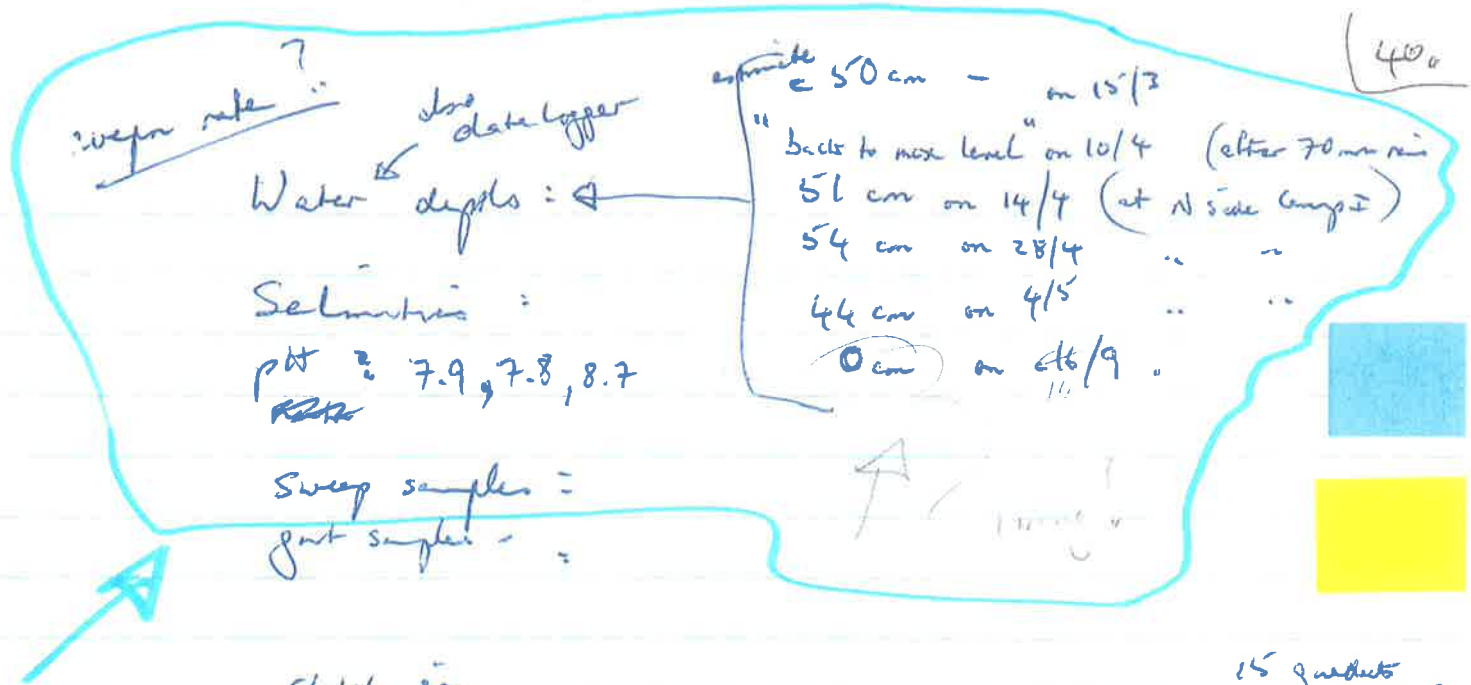 40.
?
evapn rate
also
data logger
Water depths :
estimate
c 50 cm - on 15/3
"back to max level" on 10/4 (after 70 mm rain
51 cm on 14/4 (at N side Camp I)
54 cm on 28/4 " "
44 cm on 4/5 " "
0 cm on /9
Salinities :
pH : 7.9, 7.8, 8.7
Sweep samples :
gut samples - :
15 quadrats